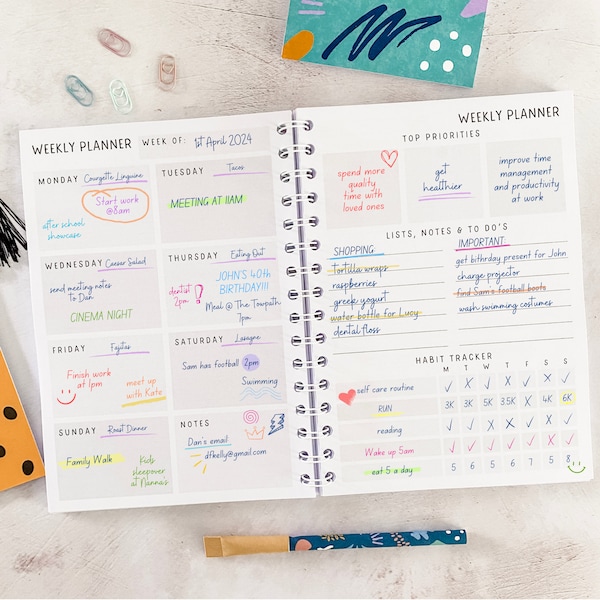 WEEKLY PLANNER WEEK OF: 1st April 2024
MONDAY Courgette Linguine
Start work
@8am
after school
showcase
TUESDAY Tacos
MEETING AT 11AM
WEDNESDAY Caesar Salad
send meeting notes
to Dan
CINEMA NIGHT
THURSDAY Eating Out
dentist
2pm !
JOHN'S 40th
BIRTHDAY!!!
Meal @ The Towpath
7pm
FRIDAY Fajitas
Finish work
at 1pm
meet up
with Kate
SATURDAY Lasagne
Sam has football 2pm
Swimming
SUNDAY Roast Dinner
Family Walk
Kids
sleepover
at Nanna's
NOTES
Dan's email
dfkelly@gmail.com
WEEKLY PLANNER
TOP PRIORITIES
spend more
quality
time with
loved ones
get
healthier
improve time
management
and productivity
at work
LISTS, NOTES & TO DO'S
SHOPPING
tortilla wraps
raspberries
greek yogurt
water bottle for Lucy
dental floss
IMPORTANT
get birthday present for John
charge projector
find Sam's football boots
wash swimming costumes
HABIT TRACKER
M T W T F S S
self care routine ✓ X ✓ X ✓ X ✓
RUN 3K 3K 5K 3.5K X 4K 6K
reading ✓ ✓ X X ✓ ✓ ✓
Wake up 5am ✓ ✓ ✓ ✓ ✓ ✓ ✓
eat 5 a day 5 6 5 6 7 5 8